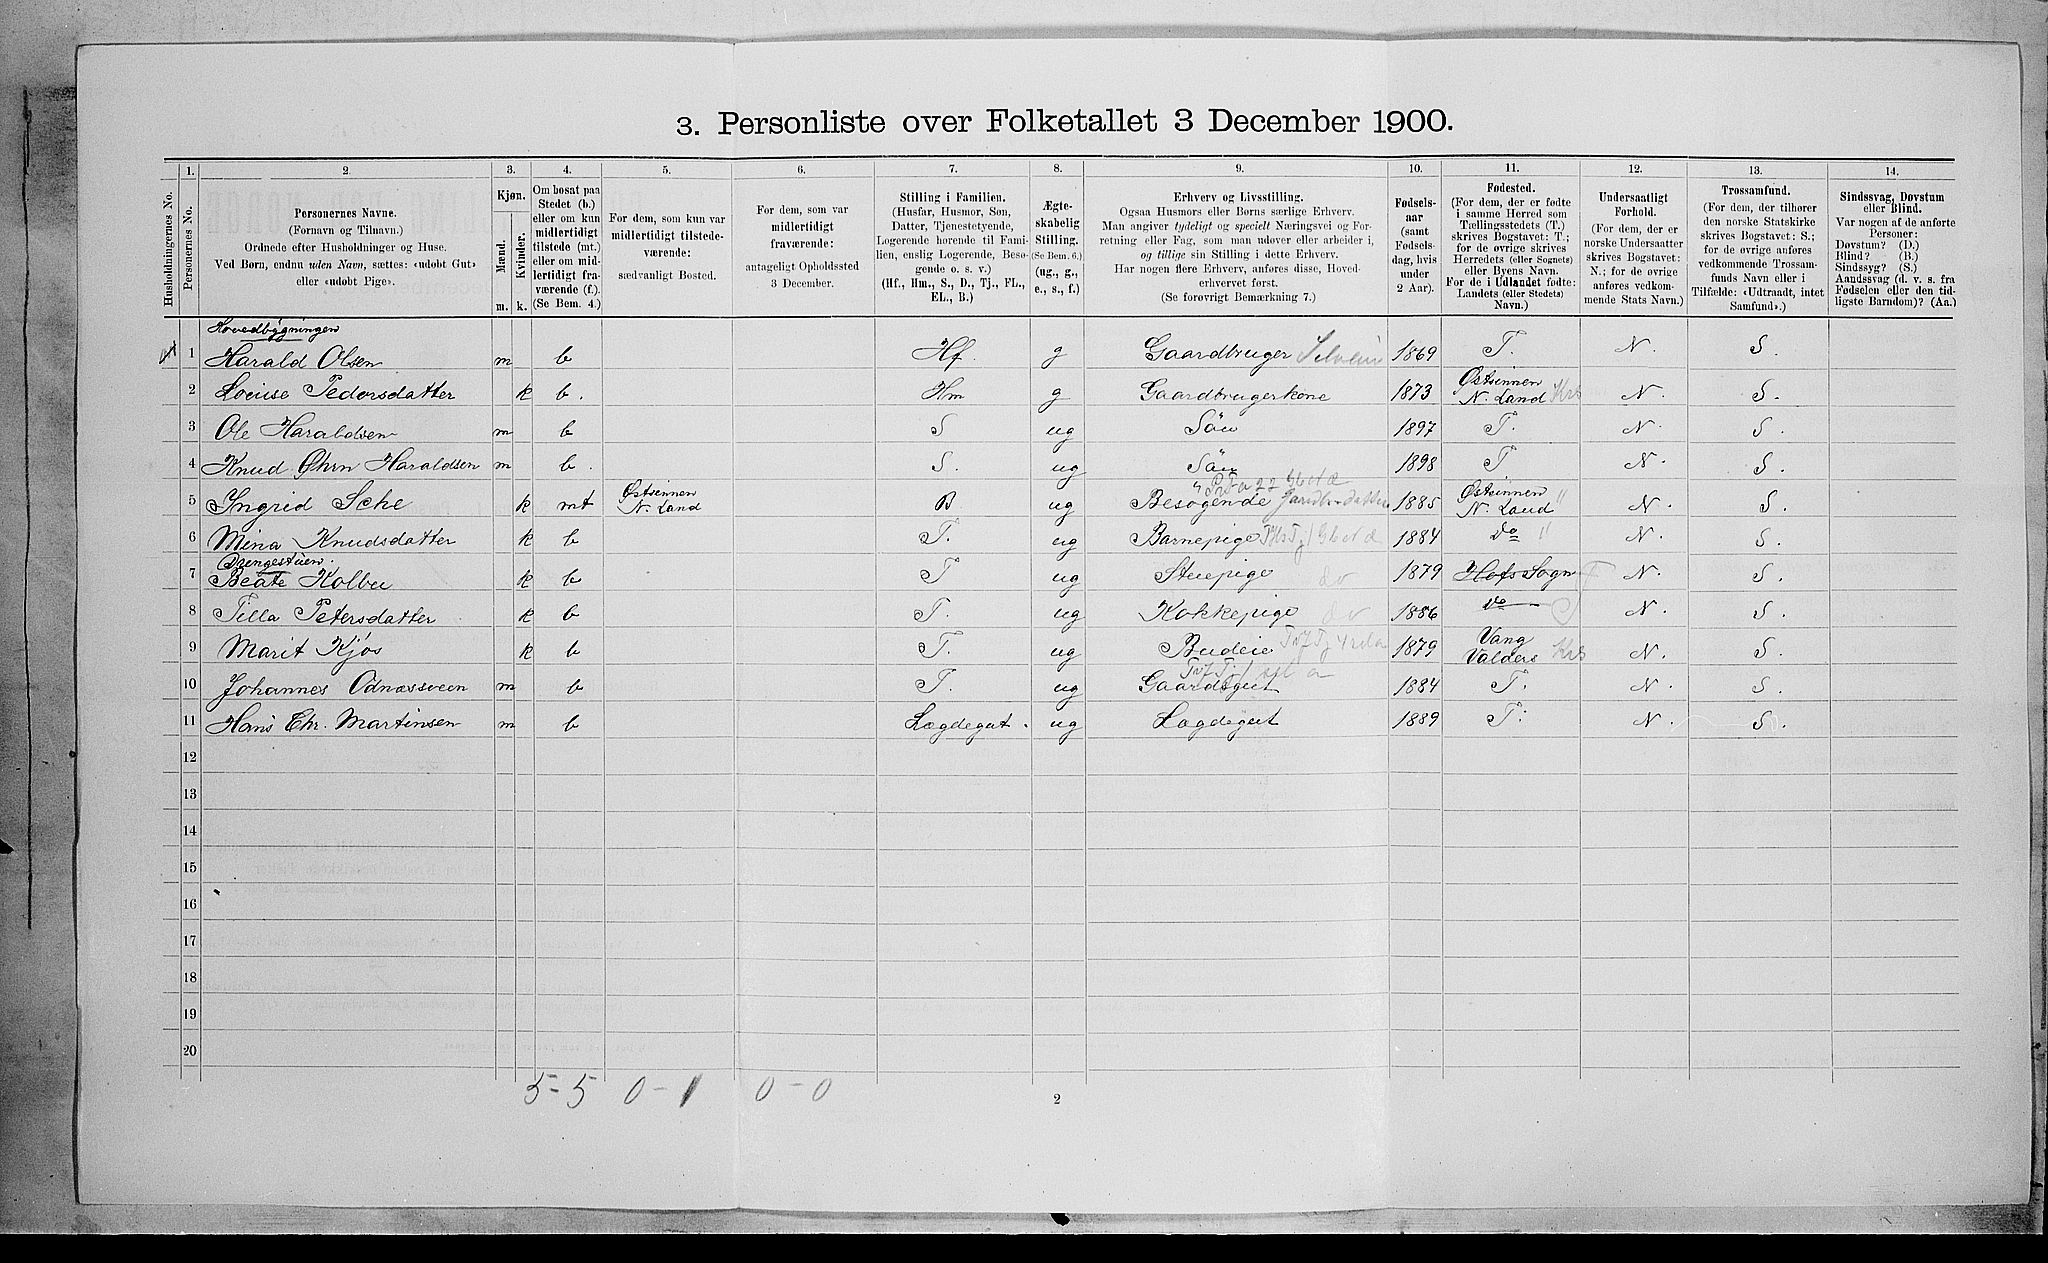 3. Personliste over Folketallet 3 December 1900.
1. 2. 3. 4. 5. 6. 7. 8. 9. 10. 11. 12. 13. 14.
Husholdningernes No.
Personernes No.
Personernes Navne.
(Fornavn og Tilnavn.)
Ordnede efter Husholdninger og Huse.
Ved Børn, endnu uden Navn, sættes: «udøbt Gut»
eller «udøbt Pige».
Kjøn.
Mænd.
Kvinder.
m. k.
Om bosat paa
Stedet (b.)
eller om kun
midlertidigt
tilstede (mt.)
eller om mid-
lertidigt fra-
værende (f.)
(Se Bem. 4.)
For dem, som kun var
midlertidigt tilstede-
værende:
sædvanligt Bosted.
For dem, som var
midlertidigt
fraværende:
antageligt Opholdssted
3 December.
Stilling i Familien.
(Husfar, Husmor, Søn,
Datter, Tjenestetyende,
Logerende hørende til Fami-
lien, enslig Logerende, Besø-
gende o. s. v.)
(Hf., Hm., S., D., Tj., FL.,
EL., B.)
Ægte-
skabelig
Stilling.
(Se Bem. 6.)
(ug., g.,
e., s., f.)
Erhverv og Livsstilling.
Ogsaa Husmors eller Børns særlige Erhverv.
Man angiver tydeligt og specielt Næringsvei og For-
retning eller Fag, som man udøver eller arbeider i,
og tillige sin Stilling i dette Erhverv.
Har nogen flere Erhverv, anføres disse, Hoved-
erhvervet først.
(Se forøvrigt Bemærkning 7.)
Fødsels-
aar
(samt
Fødsels-
dag, hvis
under
2 Aar).
Fødested.
(For dem, der er fødte
i samme Herred som
Tællingsstedets (T.)
skrives Bogstavet: T.;
for de øvrige skrives
Herredets (eller Sognets)
eller Byens Navn.
For de i Udlandet fødte:
Landets (eller Stedets)
Navn.)
Undersaatligt
Forhold.
(For dem, der er
norske Undersaatter
skrives Bogstavet:
N.; for de øvrige
anføres vedkom-
mende Stats Navn.)
Trossamfund.
(For dem, der tilhører
den norske Statskirke
skrives Bogstavet: S.;
for de øvrige anføres
vedkommende Trossam-
funds Navn eller i
Tilfælde: «Udtraadt, intet
Samfund».)
Sindssvag, Døvstum
eller Blind.
Var nogen af de anførte
Personer:
Døvstum? (D.)
Blind? (B.)
Sindssyg? (S.)
Aandssvag (d. v. s. fra
Fødselen eller den tid-
ligste Barndom)? (Aa.)
Hovedbygningen
1 Harald Olsen m b Hf. g Gaardbruger Selveier 1869 T. N. S.
2 Louise Pedersdatter k b. Hm g Gaardbrugerkone 1873 Østsinnen N. Land Krs N. S.
3 Ole Haraldsen m b S ug Sön 1897 T. N. S.
4 Knud Haraldsen m b. S. ug Sön 1898 T N. S.
5 Ingrid Sche k mt Østsinnen N. Land B ug Besögende 1885 Østsinnen N. Land " N. S.
6 Mina Knudsdatter k b T. ug Barnepige 1884 do " N. S.
Drengestuen.
7 Beate Kolbu k b T ug Stuepige do 1879 Hofs Sogn T N. S.
8 Tilla Petersdatter k b T. ug Kokkepige do 1886 do N. S.
9 Marit Kjös k b T. ug Budeie 1879 Vang Valders Krs N. S.
10 Johannes Odnæsveen m b T. ug Gaardsgut 1884 T. N. S.
11 Hans Chr. Martinsen m b Lægdegut. ug Lægdegut 1889 T. N. S.
12
13
14
15
16
17
18
19
20
5-5 0-1 0-0
2